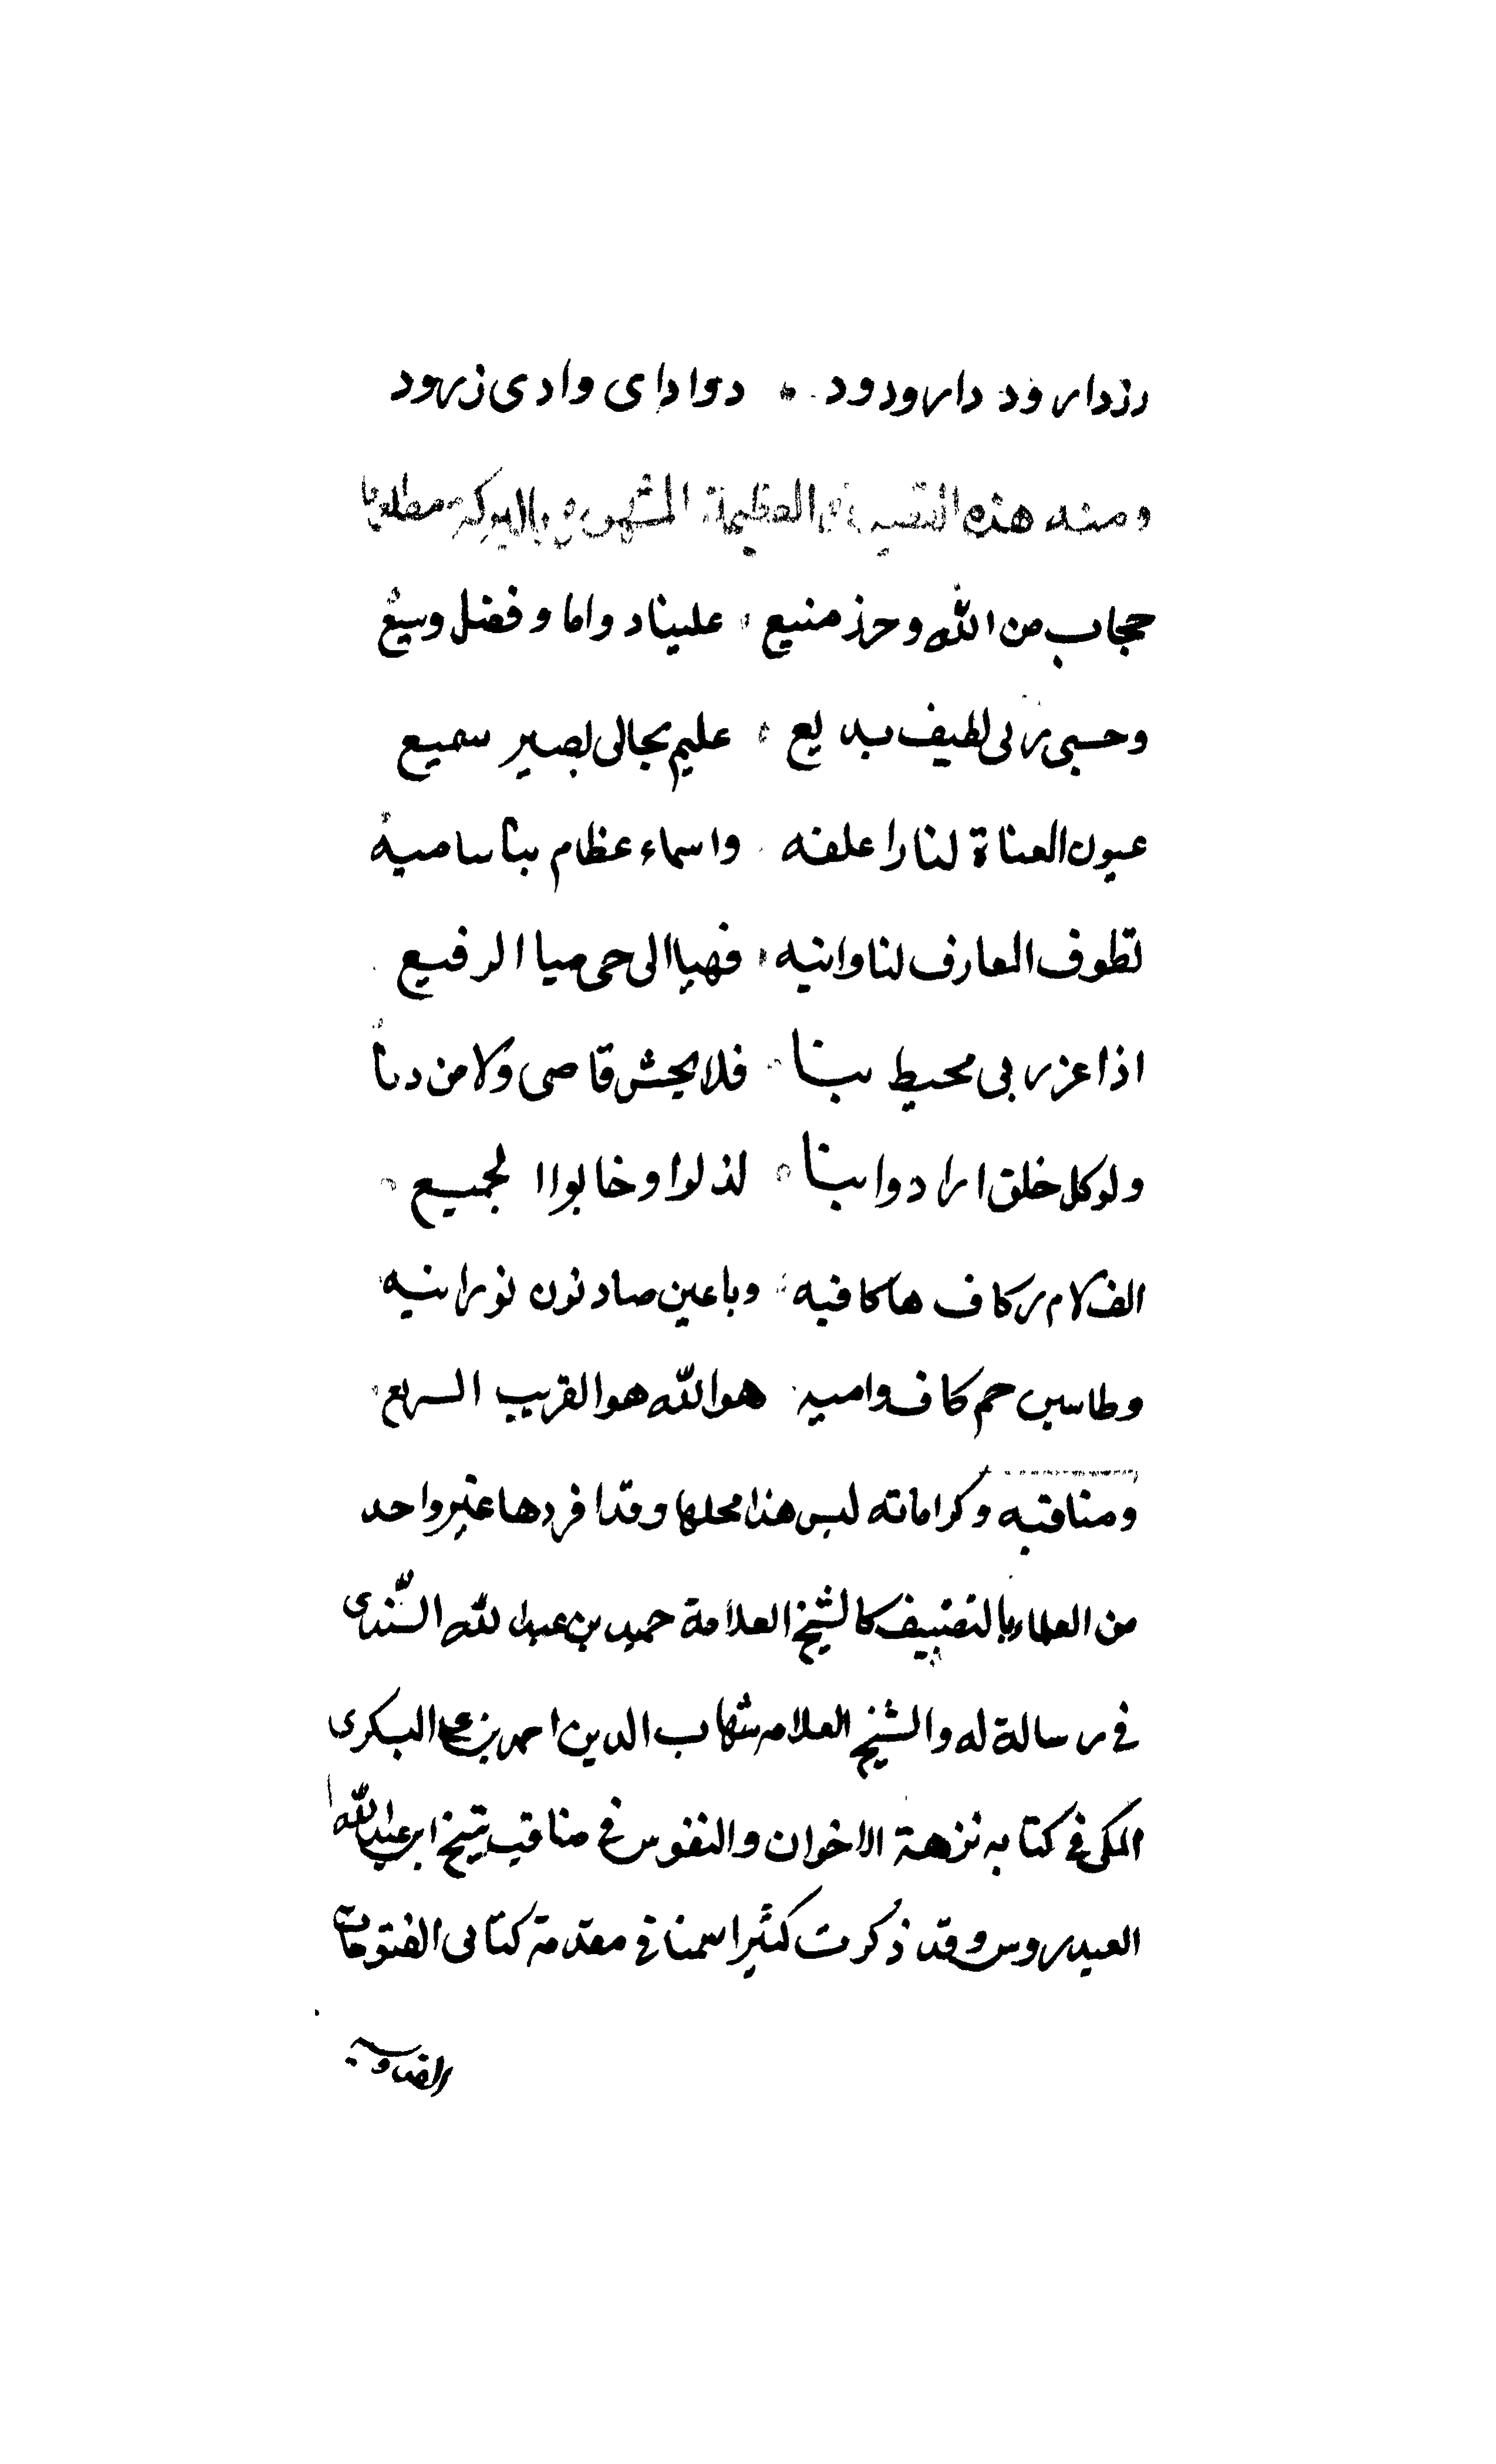 رزدار ود دارودود دوا داى وادى زرود
ومنه هذه القصيدة العظيمة المشهورة بالبركة مطلعها
حجاب من الله وحرز منيع علينا دواما وفضل وسيع
وحسبى ربى لطيف بديع عليم بحالى بصير سميع
عيون العناة لنا راعلفه واسماء عظام بنا ساميه
تطوف المعارف لنا وانيه فهيا الى حى ميا الرفيع
اذا عز ربى محيط بنا فلا يحش قاصى ولا من دنا
ولو كل خلق ارادوا بنا لذلوا وخابوا الجميع
الف لام ر كاف ها كافيه وبا عين صاد نون نورانيه
وطاسين حم كاف واميه هو الله هو القريب السريع
ومناقبه وكراماته ليس هذا محلها وقد افردها غير واحد
من العلماء بالتصنيف كالشيخ العلامة حميد بن عبد الله السندى
فى رسالة له والشيخ العلامه شهاب الدين احمد بن على البسكرى
المكى فى كتابه نزهة الاخوان والنفوس فى مناقب شيخ ابن عبد الله
العيدروس وقد ذكرت كثيرا منها فى مقدمة كتابى الفتوحات
القدوسيه